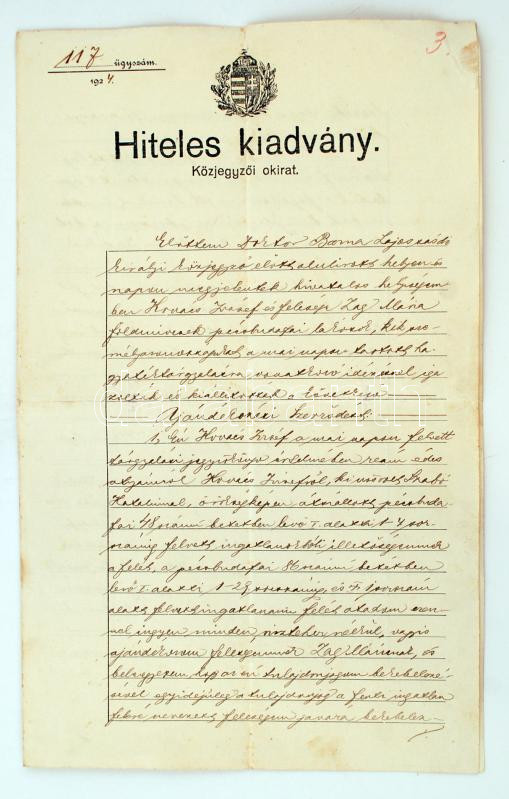 117 ügyszám.
3.
1924.
Hiteles kiadvány.
Közjegyzői okirat.
Előttem Doktor Barna Lajos
királyi közjegyző előtt alulirott helyen és
napon megjelentek hivatalos helyiségem-
ben Kovács József és felesége Zag Mária
földmivesek pécsbudafai lakosok, kik sze-
mélyazonosságukat a mai napon tartott ha-
gyatéktárgyalásra vonatkozó idézéssel iga-
zolták és kiállitották a következő
Ajándékozási Szerződést:
1, Én Kovács József a mai napon felvett
tárgyalási jegyzőkönyv értelmében reám édes
atyámról Kovács Józsefről, ki nősve Szabó
Katalinnal, örökségképen átszállott pécsbuda-
fai 48 számu betétben levő I. alatti 1-4 sor-
számig felvett ingatlanokbóli illetőségemnek
a felét, a pécsbudafai 86 számu betétben
levő I. alatti 1-29 sorszámig, és II. 1 sorszám
alatt felvett ingatlanaim felét átadom ezen-
nel ingyen minden visszteher nélkül, vagyis
ajándékozom feleségemnek Zag Máriának, és
belegyezem, hogy az én tulajdonjogom bekebelezé-
sével egyidejüleg a tulajdonjog a fenti ingatlan
felére nevezett feleségem javára bekebelez-